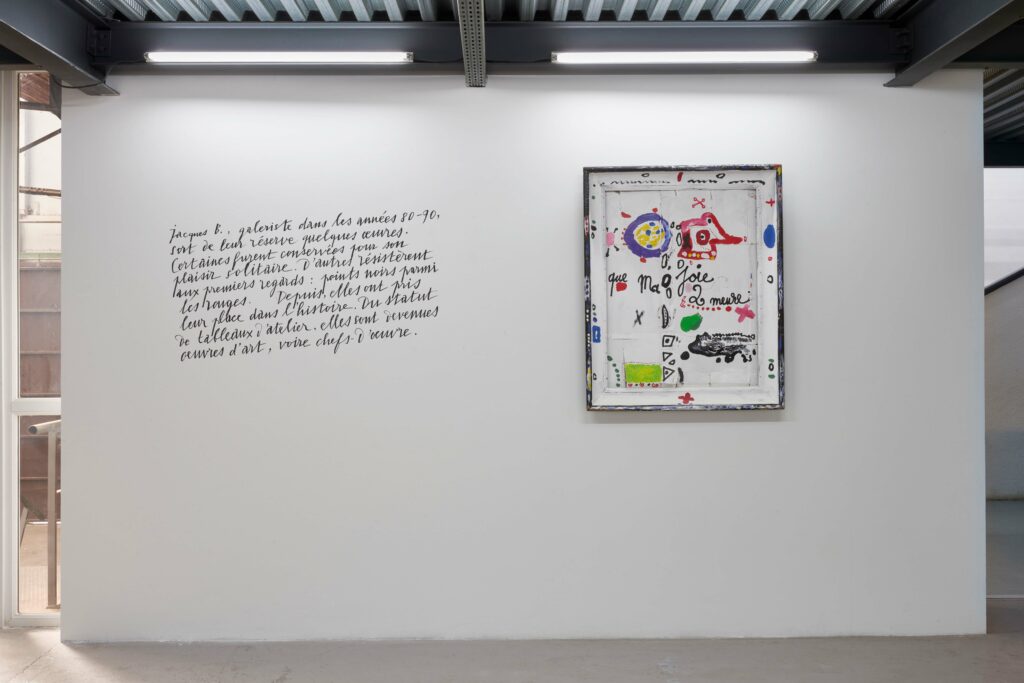 Jacques B., galeriste dans les années 80-90,
sort de leur réserve quelques œuvres.
Certaines furent conservées pour son
plaisir solitaire. D'autres résistèrent
aux premiers regards : points noirs parmi
les rouges. Depuis, elles ont pris
leur place dans l'histoire. Du statut
de tableaux d'atelier, elles sont devenues
œuvres d'art, voire chefs-d'œuvre.
que Ma Joie
2 meure